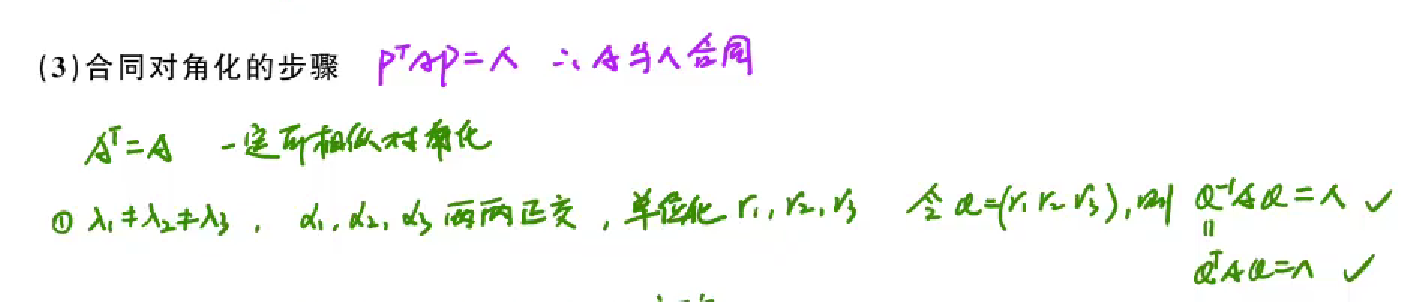 (3)合同对角化的步骤 PᵀAP=Λ ∴A与Λ合同
Aᵀ=A 一定可相似对角化
① λ₁≠λ₂≠λ₃, α₁,α₂,α₃两两正交,单位化 r₁,r₂,r₃ 令Q=(r₁ r₂ r₃),则 Q⁻¹AQ=Λ ✓
=
QᵀAQ=Λ ✓